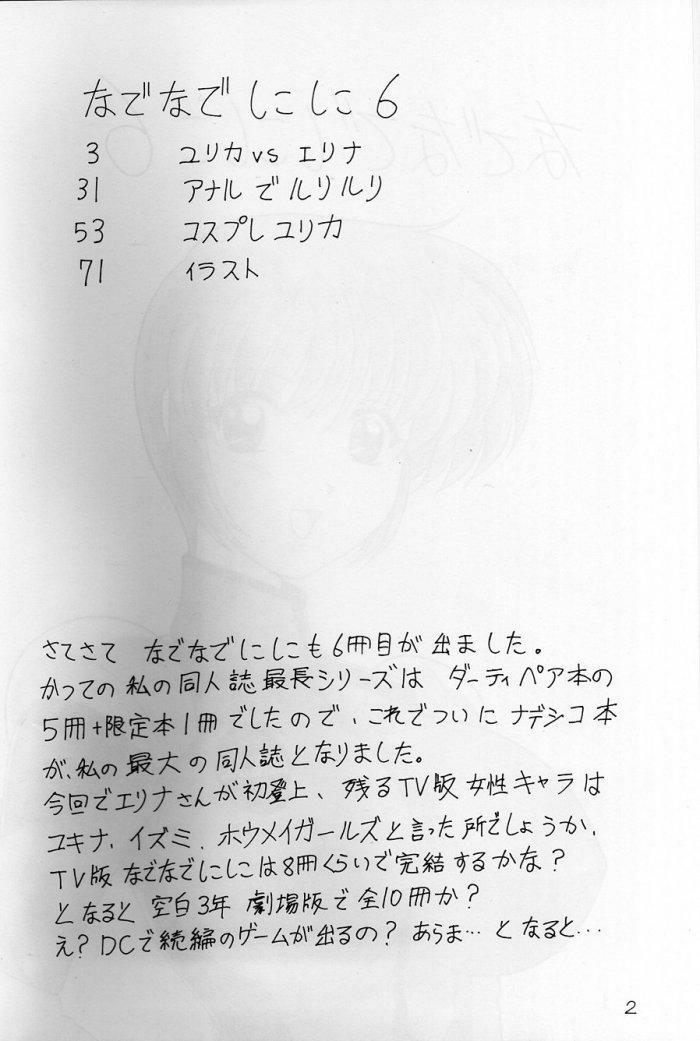 なでなでしこしこ 6
3 ユリカ vs エリナ
31 アナル で ルリルリ
53 コスプレ ユリカ
71 イラスト
さてさて なでなでにしこも 6冊目が 出ました。
かっての 私の 同人誌 最長シリーズは ダーティペア本の
5冊+限定本1冊 でしたので、これでついに ナデシコ 本
が、私の 最大の 同人誌となりました。
今回でエリナさんが初登上、残るTV版 女性キャラは
ユキナ、イズミ、ホウメイガールズと言った 所でしょうか、
TV版 なでなでにしこは 8冊くらいで完結するかな?
となると 空白3年 劇場版で 全10冊か?
え? DCで続編のゲームが出るの? あらま… となると…
2